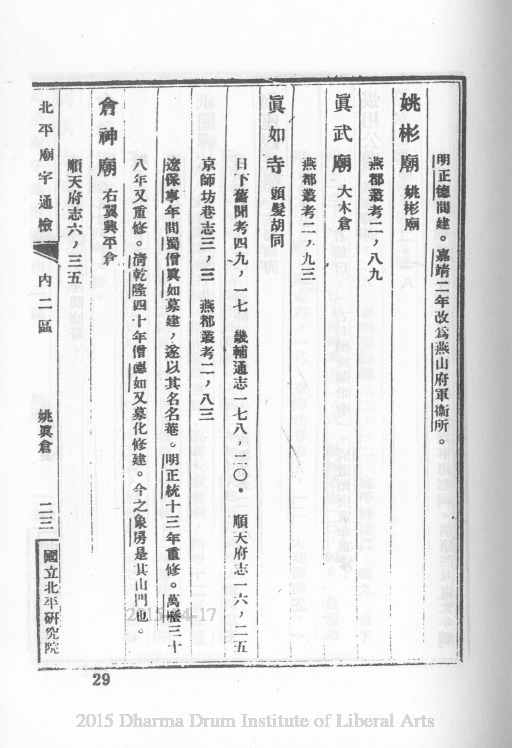 明正德間建。嘉靖二年改爲燕山府軍衞所。
姚彬廟 姚彬廟
燕都叢考二，八九
眞武廟 大木倉
燕都叢考二，九三
眞如寺 頭髮胡同
日下舊聞考四九，一七 畿輔通志一七八，二〇。 順天府志一六，二五
京師坊巷志三，三 燕都叢考二，八三
遼保寧年間蜀僧眞如募建，遂以其名名菴。明正統十三年重修。萬曆三十
八年又重修。淸乾隆四十年僧 如又募化修建。今之象房是其山門也。
倉神廟 右翼興平倉
順天府志六，三五
北平廟宇通檢 內二區 姚眞倉 二三 國立北平研究院
29
2015-04-17
2015 Dharma Drum Institute of Liberal Arts